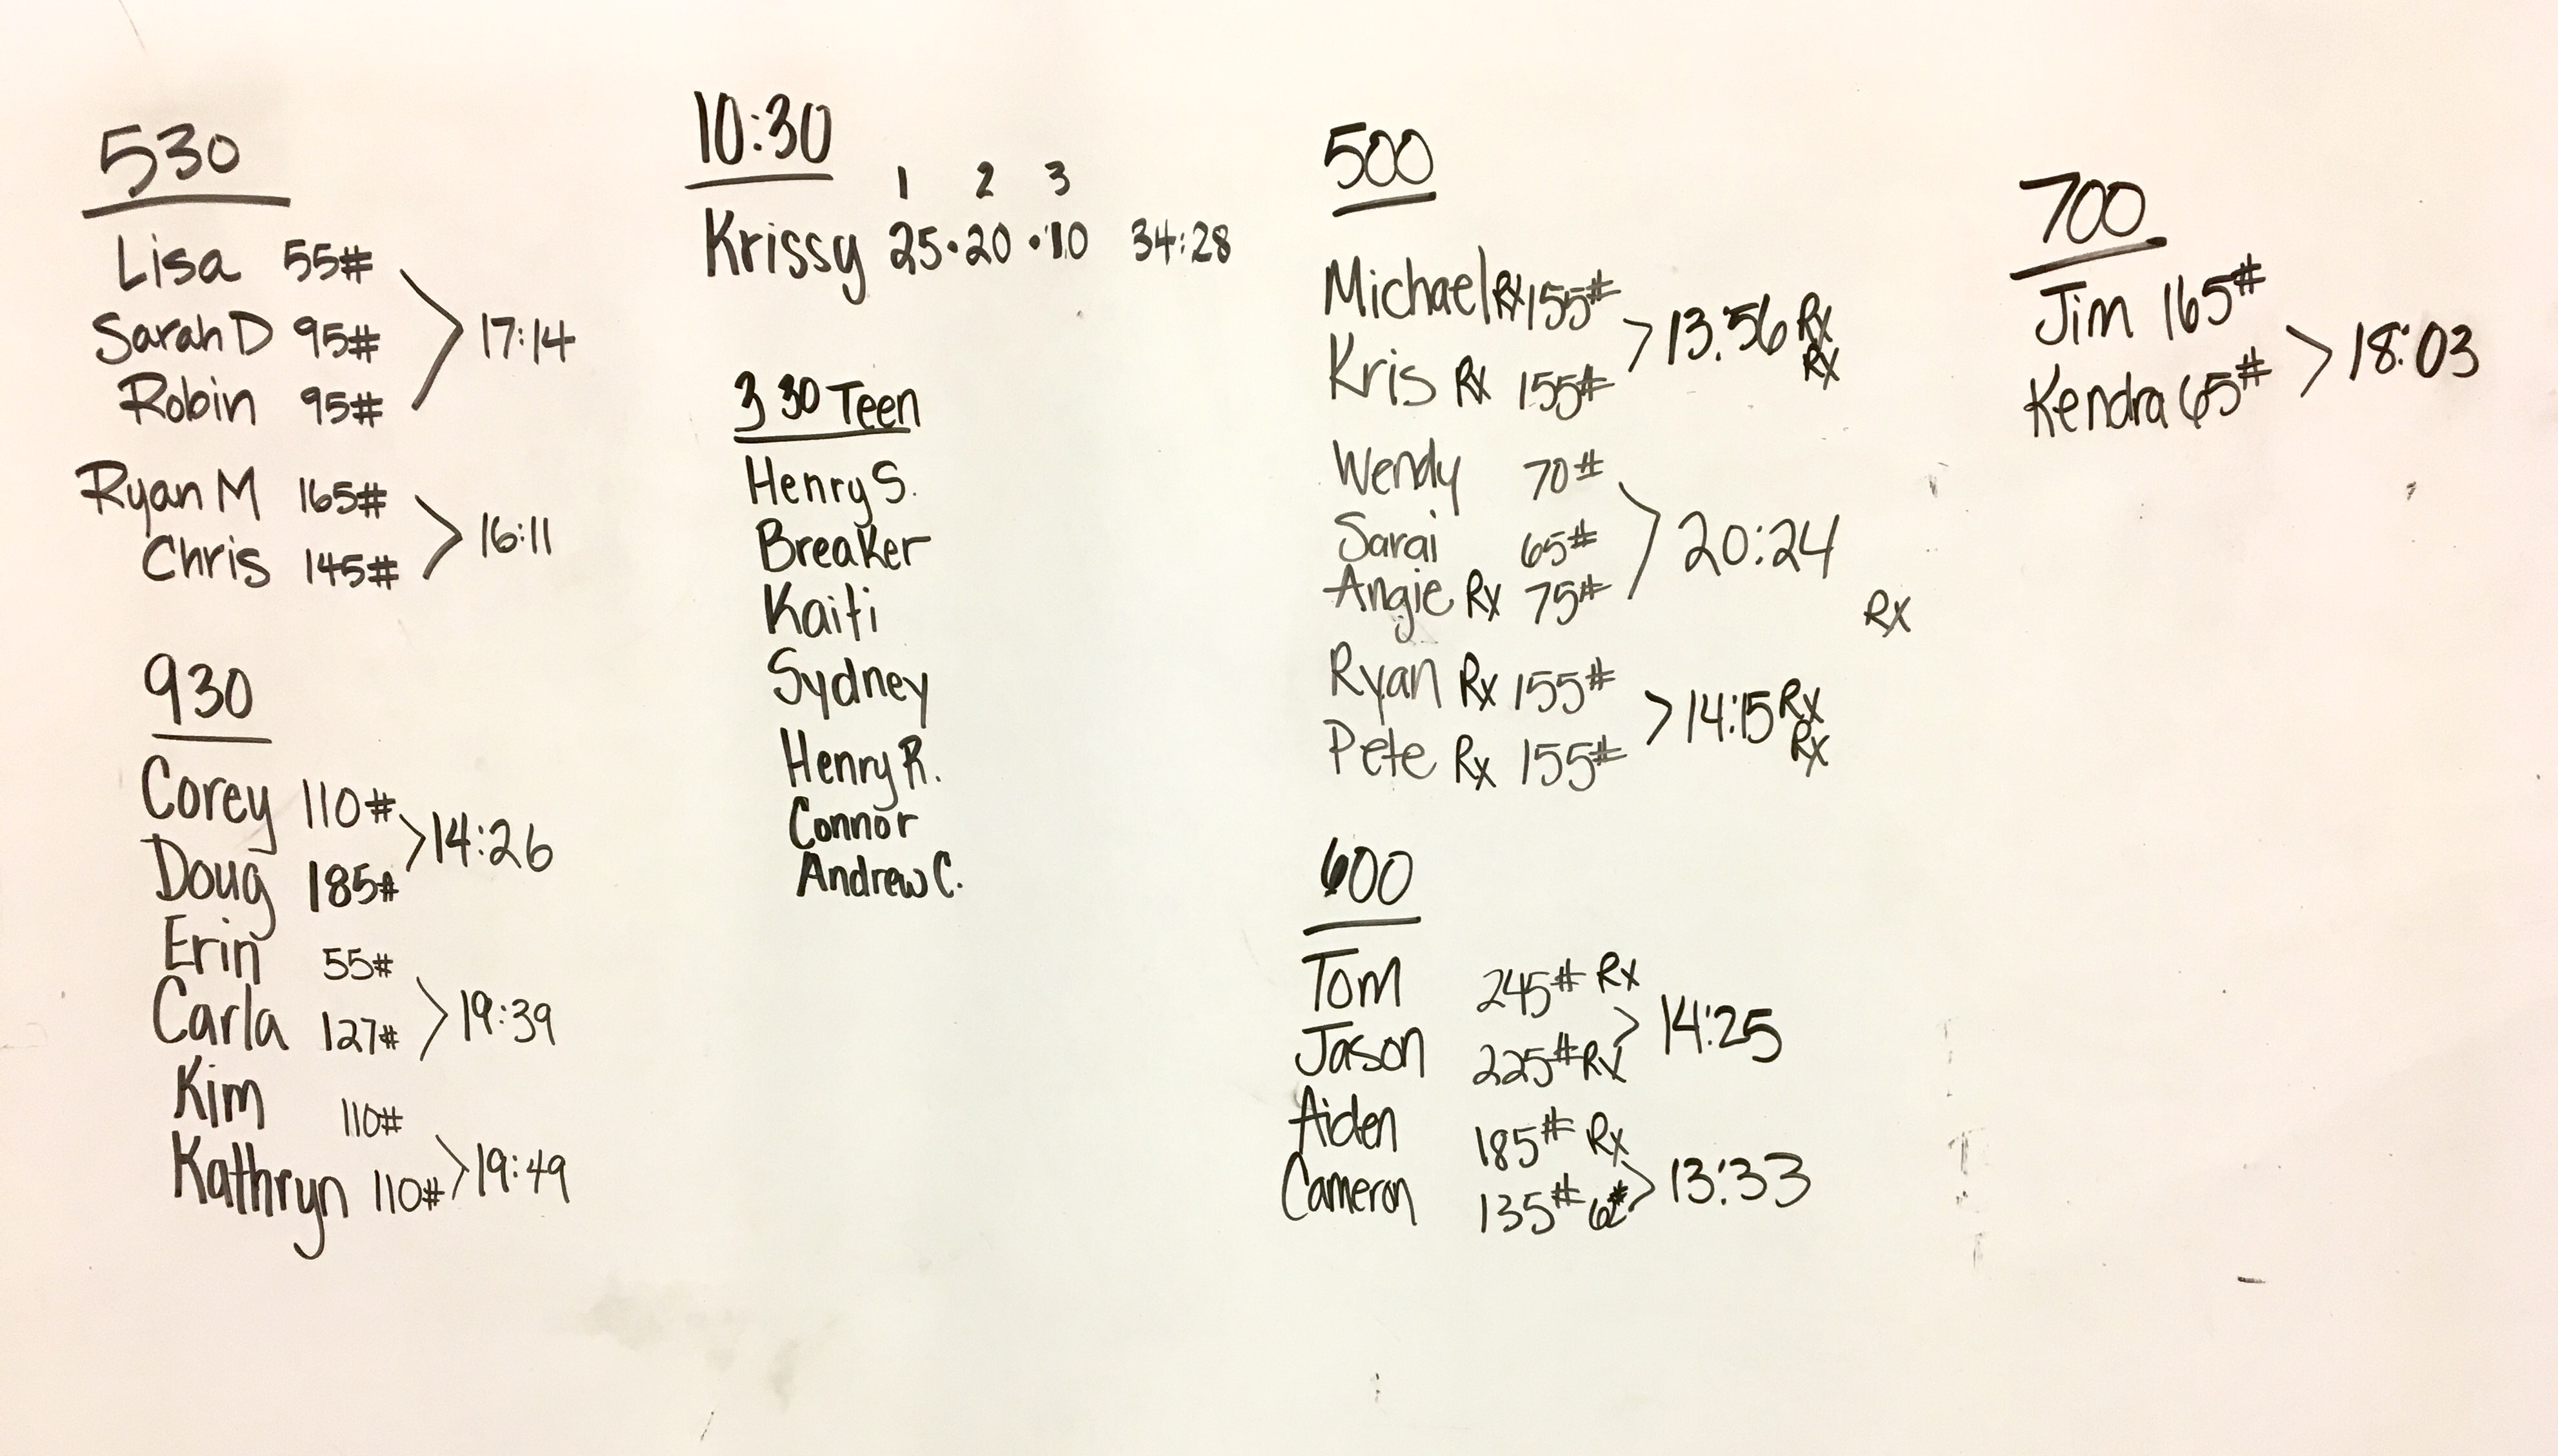 530
Lisa 55#
Sarah D 95# > 17:14
Robin 95#
Ryan M 165#
> 16:11
Chris 145#
930
Corey 110#
> 14:26
Doug 185#
Erin 55#
> 19:39
Carla 127#
Kim 110#
> 19:49
Kathryn 110#
10:30
1 2 3
Krissy 25·20·10 34:28
3 30 Teen
Henry S.
Breaker
Kaiti
Sydney
Henry R.
Connor
Andrew C.
500
Michael Rx 155#
> 13:56 Rx
Rx
Kris Rx 155#
Wendy 70#
Sarai 65# > 20:24
Angie Rx 75# Rx
Ryan Rx 155#
> 14:15 Rx
Rx
Pete Rx 155#
600
Tom 245# Rx
> 14:25
Jason 225# Rx
Aiden 185# Rx
> 13:33
Cameron 135# 6#
700
Jim 165#
> 18:03
Kendra 65#